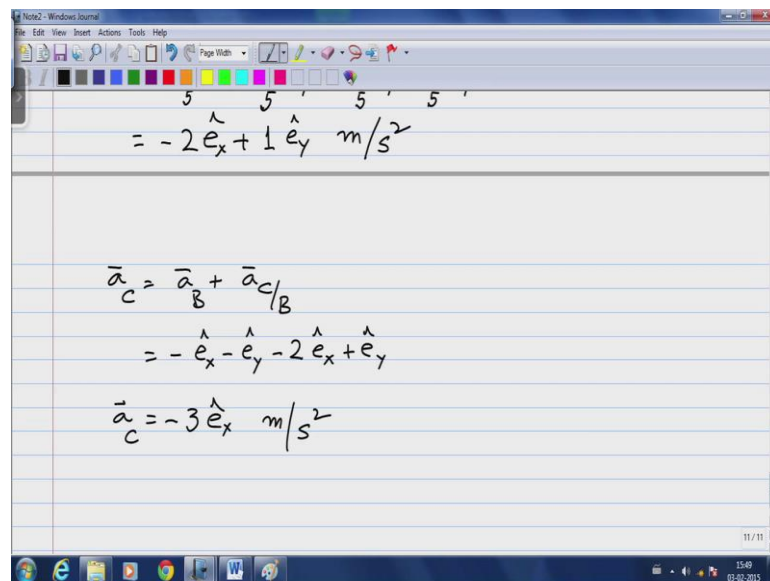 Note2 - Windows Journal
File Edit View Insert Actions Tools Help
Page Width
B I
5 5 5 5
= - 2 ê_x + 1 ê_y m/s²
ā_C = ā_B + ā_C/B
= - ê_x - ê_y - 2 ê_x + ê_y
ā_C = - 3 ê_x m/s²
11 / 11
15:49
03-02-2015